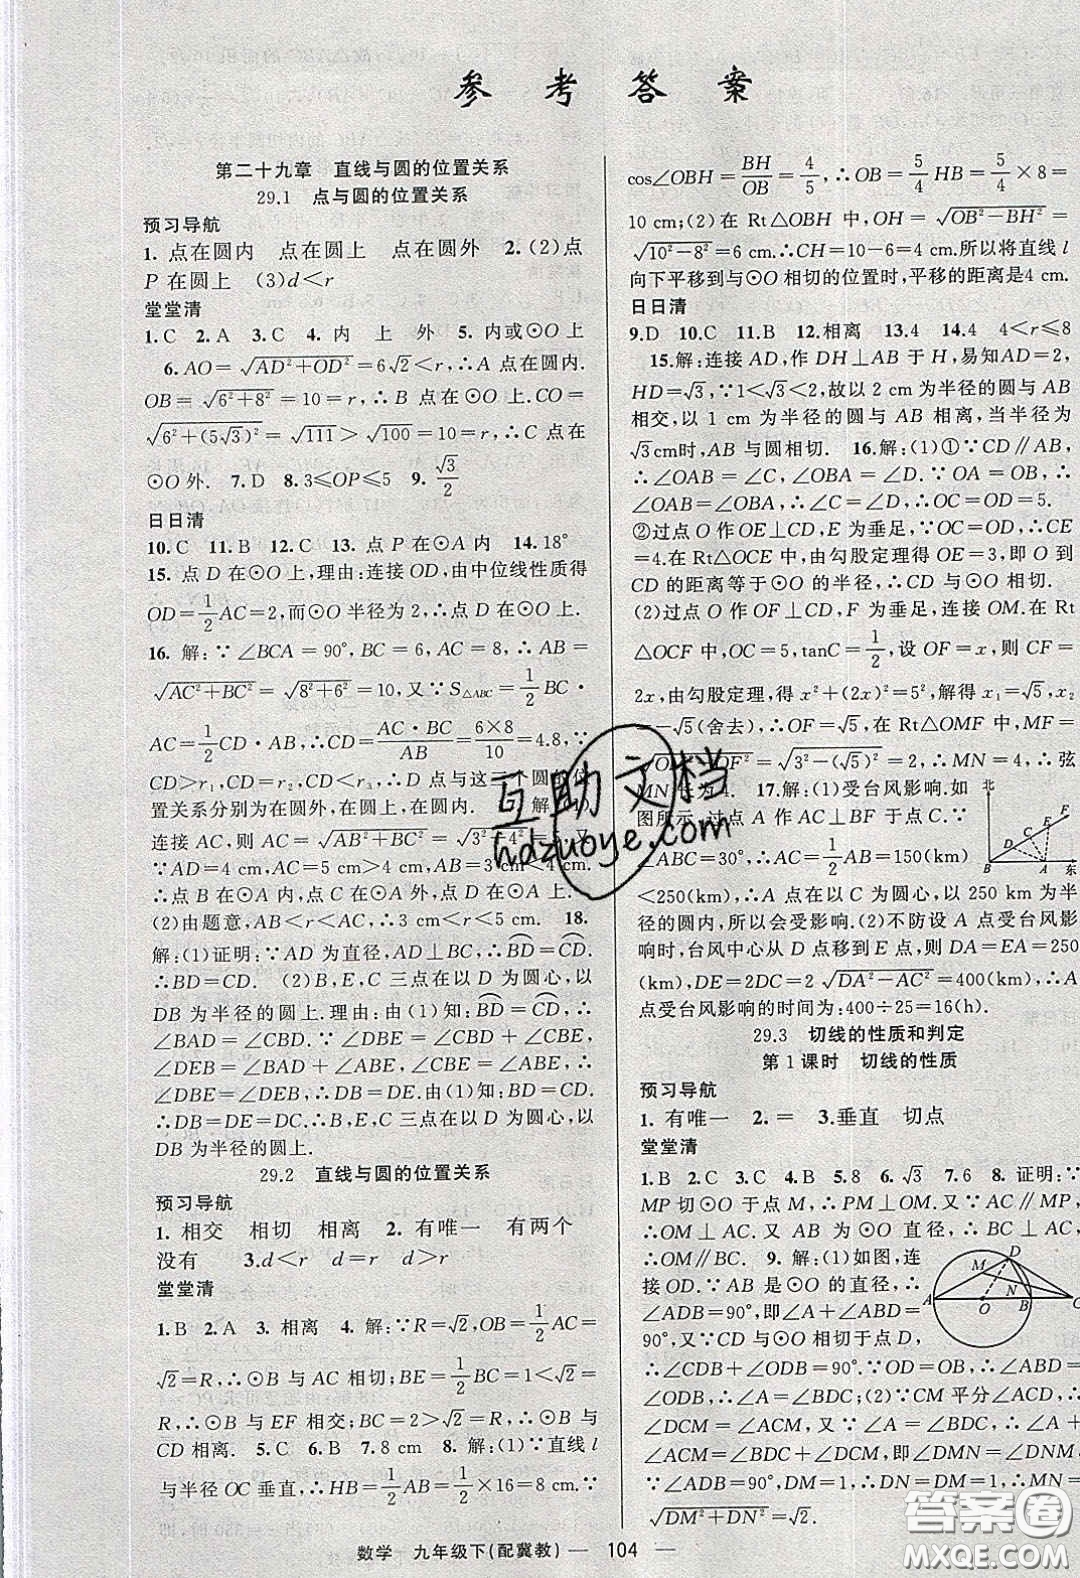 参考答案
第二十九章 直线与圆的位置关系
29.1 点与圆的位置关系
预习导航
1. 点在圆内 点在圆上 点在圆外 2. (2)点
P 在圆上 (3)d＜r
堂堂清
1.C 2.A 3.C 4. 内 上 外 5. 内或⊙O 上
6.AO=√(AD²+OD²)=6√2＜r,∴A 点在圆内.
OB=√(6²+8²)=10=r,∴B 点在⊙O 上.OC=
√(6²+(5√3)²)=√111＞√100=10=r,∴C 点在
⊙O 外. 7.D 8.3≤OP≤5 9.√3/2
日日清
10.C 11.B 12.C 13. 点 P 在⊙A 内 14.18°
15. 点 D 在⊙O 上,理由:连接 OD,由中位线性质得
OD=1/2AC=2,而⊙O 半径为 2,∴点 D 在⊙O 上.
16. 解:∵∠BCA=90°,BC=6,AC=8,∴AB=
√(AC²+BC²)=√(8²+6²)=10,又∵S△ABC=1/2BC·
AC=1/2CD·AB,∴CD=AC·BC/AB=6×8/10=4.8,∵
CD＞r₁,CD=r₂,CD＜r₃,∴D 点与这三个圆的位
置关系分别为在圆外,在圆上,在圆内. 解:(1)
连接 AC,则 AC=√(AB²+BC²)=√(3²+4²)=5,又
∵AD=4 cm,AC=5 cm＞4 cm,AB=3 cm＜4 cm.
∴点 B 在⊙A 内,点 C 在⊙A 外,点 D 在⊙A 上.
(2)由题意,AB＜r＜AC,∴3 cm＜r＜5 cm. 18.
解:(1)证明:∵AD 为直径,AD⊥BC,∴BD=CD.
∴BD=CD. (2)B,E,C 三点在以 D 为圆心,以
DB 为半径的圆上.理由:由(1)知:BD=CD,∴
∠BAD=∠CBD.∵∠DBE=∠CBD+∠CBE,
∠DEB=∠BAD+∠ABE,∠CBE=∠ABE,∴
∠DBE=∠DEB,∴DB=DE.由(1)知:BD=CD.
∴DB=DE=DC.∴B,E,C 三点在以 D 为圆心,以
DB 为半径的圆上.
29.2 直线与圆的位置关系
预习导航
1. 相交 相切 相离 2. 有唯一 有两个
没有 3.d＜r d=r d＞r
堂堂清
1.B 2.A 3. 相离 4. 解:∵R=√2,OB=1/2AC=
√2=R,∴⊙B 与 AC 相切;BE=1/2BC=1/2×2√2=√2=
R,∴⊙B 与 EF 相交;BC=2＞√2,BC＞R,∴⊙B 与
CD 相离. 5.C 6.B 7.8 cm 8. 解:(1)∵直线 l
与半径 OC 垂直,∴HB=1/2AB=1/2×16=8 cm.∵
cos∠OBH=BH/OB=4/5,∴OB=5/4HB=5/4×8=
10 cm;(2)在 Rt△OBH 中,OH=√(OB²-BH²)=
√(10²-8²)=6 cm.∴CH=10-6=4 cm.所以将直线 l
向下平移到与⊙O 相切的位置时,平移的距离是4 cm.
日日清
9.D 10.C 11.B 12.相离 13.4 14.4 4＜r≤8
15.解:连接 AD,作 DH⊥AB 于 H,易知AD=2,
HD=√3,∵1＜√3＜2,故以2 cm 为半径的圆与 AB
相交,以 1 cm 为半径的圆与 AB 相离,当半径为
√3cm时,AB 与圆相切. 16.解:(1)①∵CD∥AB,
∴∠OAB=∠C,∠OBA=∠D.∵OA=OB,∴
∠OAB=∠OBA,∴∠C=∠D,∴OC=OD=5.
②过点 O 作 OE⊥CD,E 为垂足,∵OC=OD,∴CE
=4.在 Rt△OCE 中,由勾股定理得 OE=3,即 O到
CD 的距离等于⊙O 的半径,∴CD 与⊙O 相切.
(2)过点 O 作 OF⊥CD,F 为垂足,连接 OM.在 Rt
△OCF 中,∵tanC=1/2,∴设 OF=x,则 CF=
2x,由勾股定理,得 x²+(2x)²=5²,解得 x₁=√5,
=-√5(舍去),∴OF=√5,在 Rt△OMF 中,MF=
=√(3²-(√5)²)=2,∴MN=4,∴弦
MN 长为 4. 17.解:(1)受台风影响.如
图所示,过点 A 作 AC⊥BF 于点 C.∵
∠ABC=30°,∴AC=1/2AB=150(km)
＜250(km),∴A 点在以 C 为圆心,以 250 km 为半
径的圆内,所以会受影响.(2)不防设 A 点受台风影
响时,台风中心从 D 点移到 E 点,则 DA=EA=250
(km),DE=2DC=2√(DA²-AC²)=400(km),∴A
点受台风影响的时间为:400÷25=16(h).
北
F
E
C
D
B
A
东
29.3 切线的性质和判定
第 1 课时 切线的性质
预习导航
1. 有唯一 2. = 3.垂直 切点
堂堂清
1.B 2.C 3.C 4.B 5.8 6.√3 7.6 8. 证明:∵
MP 切⊙O 于点 M,∴PM⊥OM.又∵AC∥MP,
∴OM⊥AC.又 AB 为⊙O 直径,∴BC⊥AC,
∴OM∥BC. 9. 解:(1)如图,连
接 OD.∵AB 是⊙O 的直径,∴
∠ADB=90°,即∠A+∠ABD=
90°,又∵CD 与⊙O 相切于点 D,
∴∠CDB+∠ODB=90°.∵OD=OB,∴∠ABD=
∠ODB,∴∠A=∠BDC;(2)∵CM 平分∠ACD,∴
∠DCM=∠ACM,又∵∠A=∠BDC,∴∠A+
∠ACM=∠BDC+∠DCM,即∠DMN=∠DNM,
∵∠ADB=90°,DM=1,∴DN=DM=1,∴MN=
√(DM²+DN²)=√2.
D
M
N
A
O
B
C
互助文档
hdzuoye.com
答案圈
MXQE.COM
数学 九年级下(配冀教) — 104 —